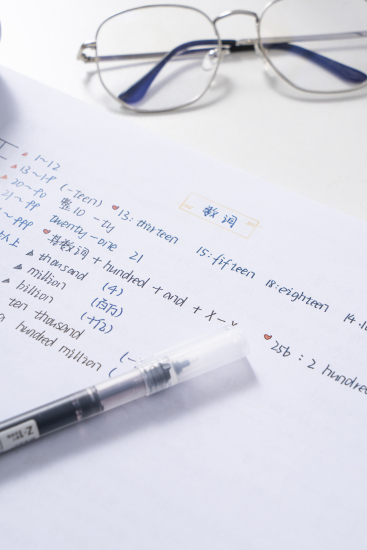 数词
1~12
13~19 (-teen) 13: thirteen 15: fifteen 18: eighteen 14
20~90 整10 -ty
21~99 twenty-one 21
基数词
thousand + hundred + and + X-X
million (百万)
billion (十亿)
ten thousand
hundred million
256: 2 hundred